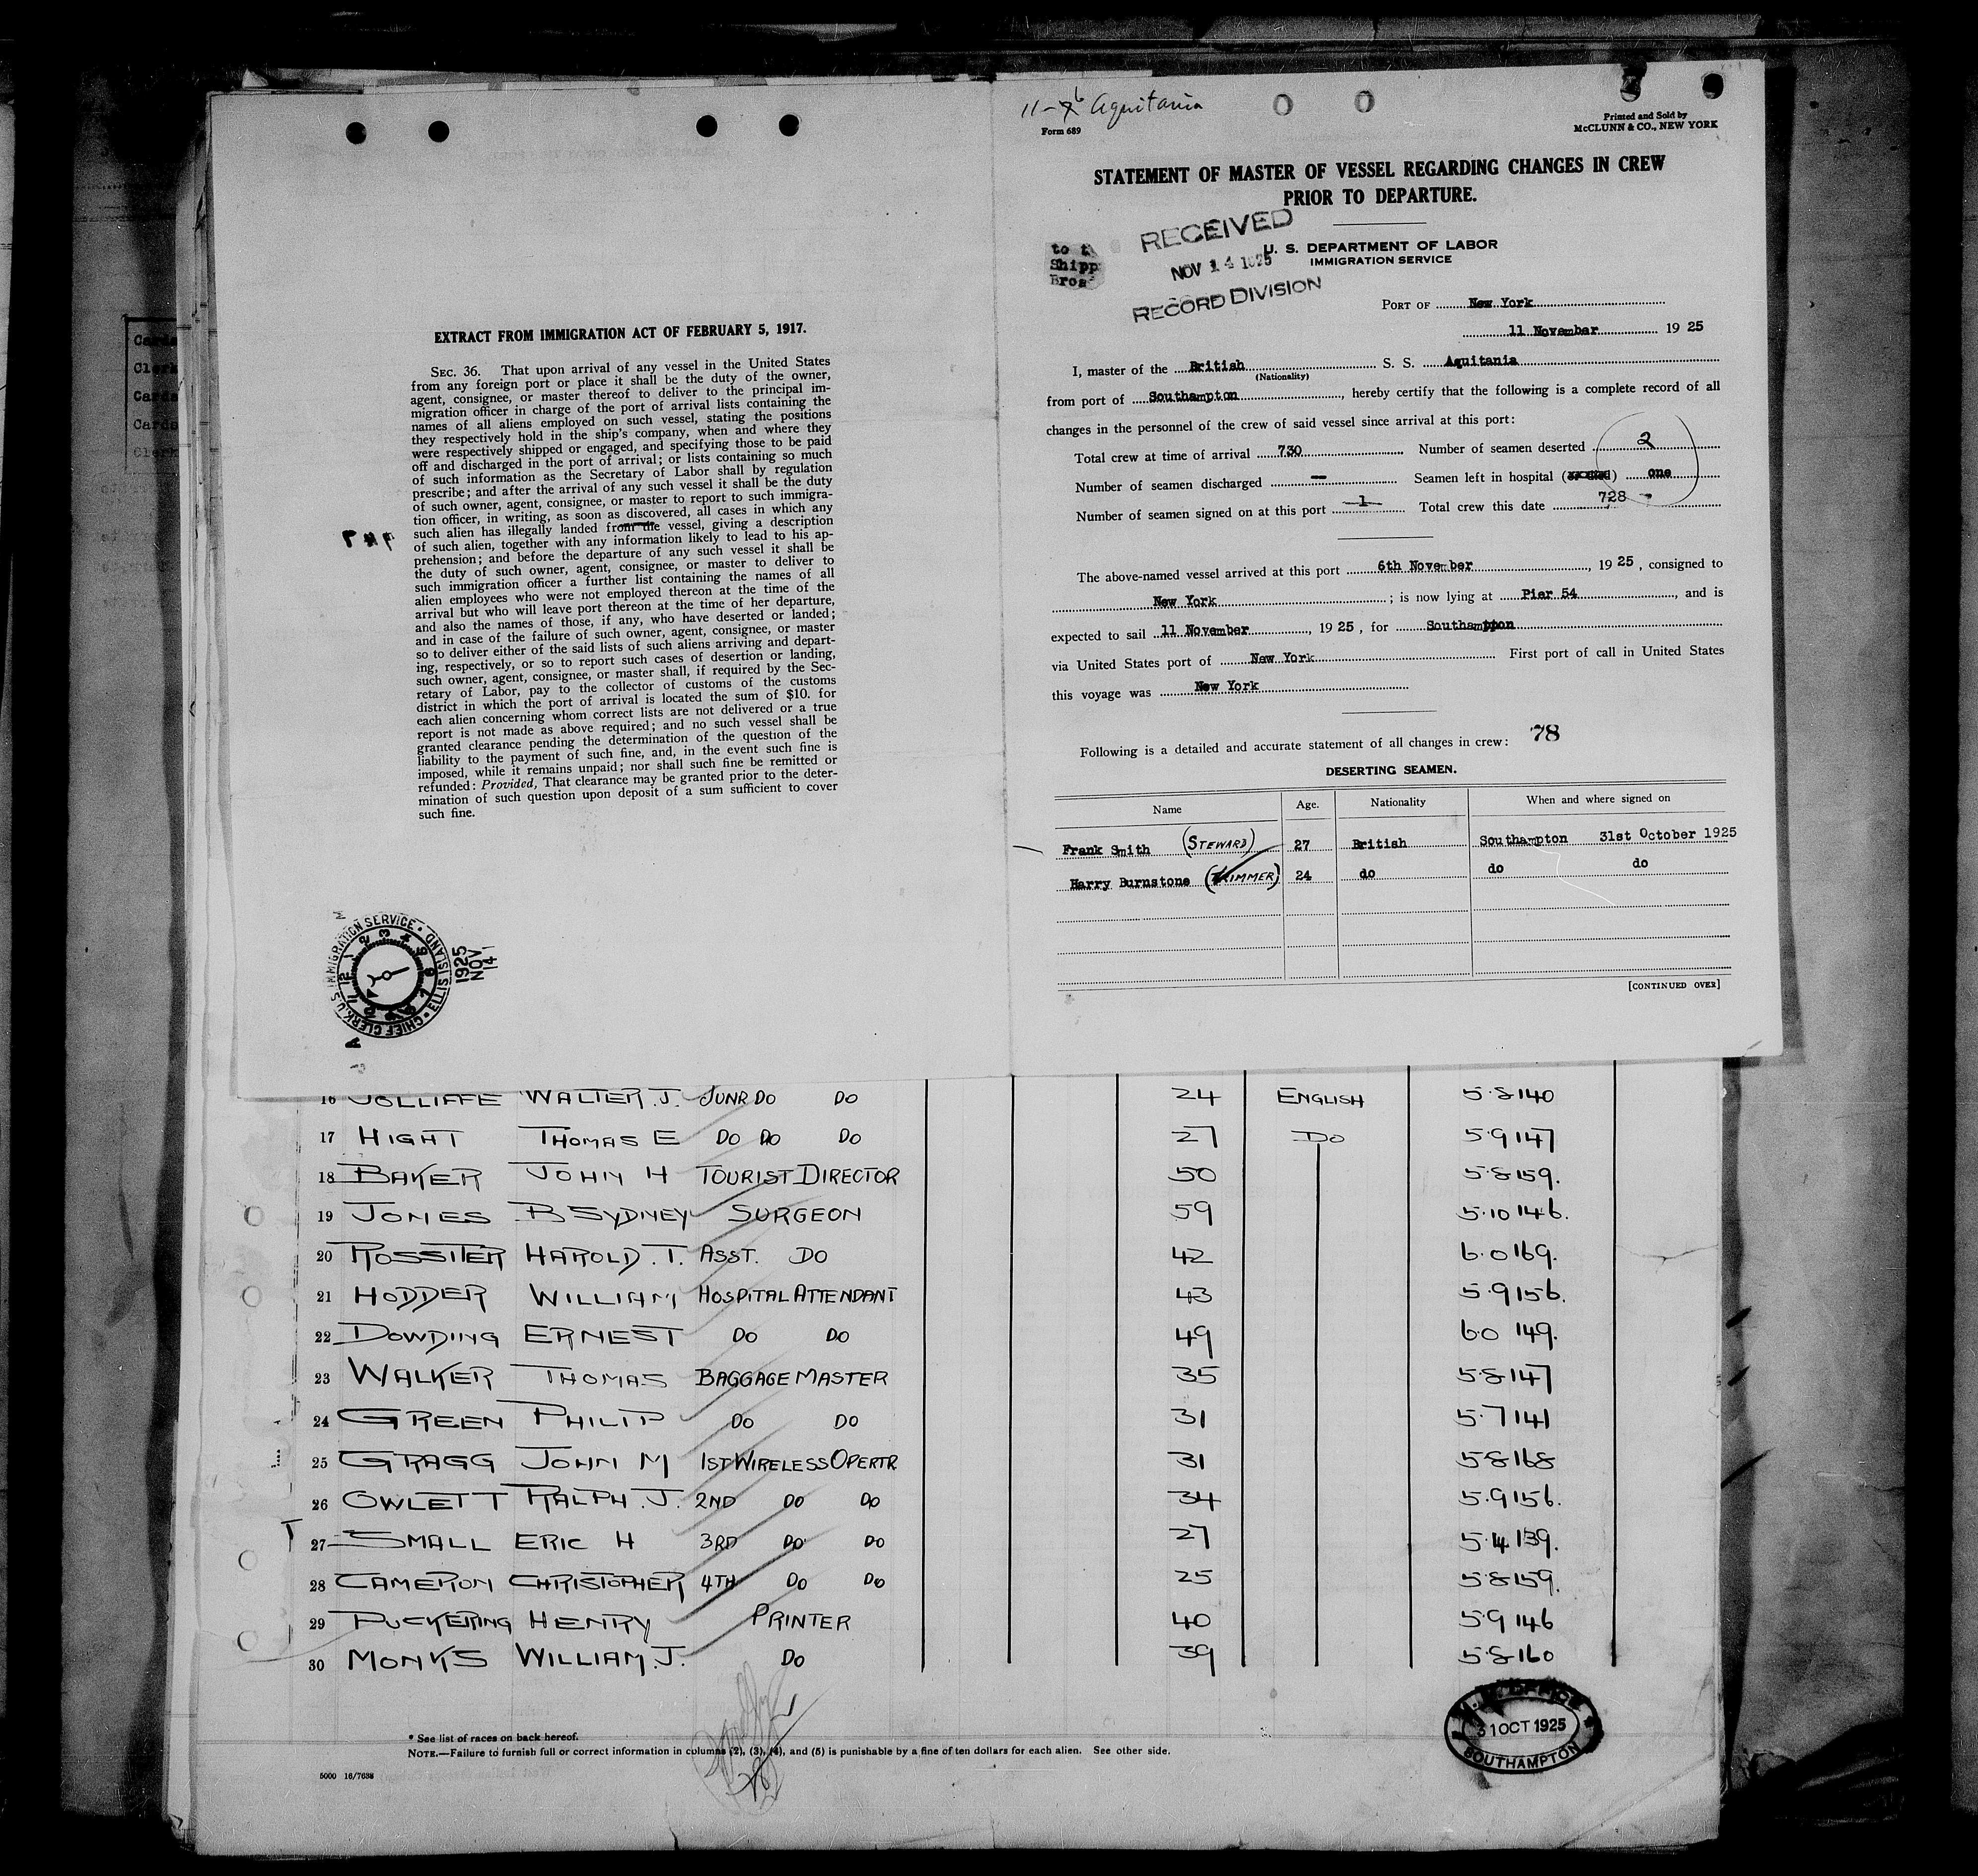 EXTRACT FROM IMMIGRATION ACT OF FEBRUARY 5, 1917.
SEC. 36. That upon arrival of any vessel in the United States
from any foreign port or place it shall be the duty of the owner,
agent, consignee, or master thereof to deliver to the principal im-
migration officer in charge of the port of arrival lists containing the
names of all aliens employed on such vessel, stating the positions
they respectively hold in the ship's company, when and where they
were respectively shipped or engaged, and specifying those to be paid
off and discharged in the port of arrival; or lists containing so much
of such information as the Secretary of Labor shall by regulation
prescribe; and after the arrival of any such vessel it shall be the duty
of such owner, agent, consignee, or master to report to such immigra-
tion officer, in writing, as soon as discovered, all cases in which any
such alien has illegally landed from the vessel, giving a description
of such alien, together with any information likely to lead to his ap-
prehension; and before the departure of any such vessel it shall be
the duty of such owner, agent, consignee, or master to deliver to
such immigration officer a further list containing the names of all
alien employees who were not employed thereon at the time of the
arrival but who will leave port thereon at the time of her departure,
and also the names of those, if any, who have deserted or landed;
and in case of the failure of such owner, agent, consignee, or master
so to deliver either of the said lists of such aliens arriving and depart-
ing, respectively, or so to report such cases of desertion or landing,
such owner, agent, consignee, or master shall, if required by the Sec-
retary of Labor, pay to the collector of customs of the customs
district in which the port of arrival is located the sum of $10. for
each alien concerning whom correct lists are not delivered or a true
report is not made as above required; and no such vessel shall be
granted clearance pending the determination of the question of the
liability to the payment of such fine, and, in the event such fine is
imposed, while it remains unpaid; nor shall such fine be remitted or
refunded: Provided, That clearance may be granted prior to the deter-
mination of such question upon deposit of a sum sufficient to cover
such fine.
U.S. IMMIGRATION SERVICE • ELLIS ISLAND • CHIEF CLERK
1925
NOV
14
11-6 Aquitania
Form 689
Printed and Sold by
McCLUNN & CO., NEW YORK
STATEMENT OF MASTER OF VESSEL REGARDING CHANGES IN CREW
PRIOR TO DEPARTURE.
RECEIVED
NOV 14 1925
RECORD DIVISION
to t
Shipp
Bros
U. S. DEPARTMENT OF LABOR
IMMIGRATION SERVICE
PORT OF New York
11 November 19 25
I, master of the British S. S. Aquitania
(Nationality)
from port of Southampton, hereby certify that the following is a complete record of all
changes in the personnel of the crew of said vessel since arrival at this port:
Total crew at time of arrival 730 Number of seamen deserted 2
Number of seamen discharged — Seamen left in hospital (or died) one
Number of seamen signed on at this port 1 Total crew this date 728
The above-named vessel arrived at this port 6th November, 19 25, consigned to
New York; is now lying at Pier 54, and is
expected to sail 11 November, 19 25, for Southampton
via United States port of New York First port of call in United States
this voyage was New York
Following is a detailed and accurate statement of all changes in crew: 78
DESERTING SEAMEN.
Name Age. Nationality When and where signed on
Frank Smith (STEWARD) 27 British Southampton 31st October 1925
Harry Burnstone (TRIMMER) 24 do do do
[CONTINUED OVER]
16 JOLLIFFE WALTER. J. JUNR DO DO 24 ENGLISH 5.8 140
17 HIGHT THOMAS E DO DO DO 27 DO 5.9 147
18 BAKER JOHN H TOURIST DIRECTOR 50 5.8 159.
19 JONES B SYDNEY SURGEON 59 5.10 146.
20 ROSSITER HAROLD. T. ASST. DO 42 6.0 169.
21 HODDER WILLIAM HOSPITAL ATTENDANT 43 5.9 156.
22 DOWDING ERNEST DO DO 49 6.0 149.
23 WALKER THOMAS BAGGAGE MASTER 35 5.8 147
24 GREEN PHILIP DO DO 31 5.7 141
25 GRAGG JOHN M 1ST WIRELESS OPERTR 31 5.8 168
26 OWLETT RALPH. J. 2ND DO DO 34 5.9 156.
27 SMALL ERIC H 3RD DO DO 27 5.4 139.
28 CAMERON CHRISTOPHER 4TH DO DO 25 5.8 159.
29 PUCKERING HENRY PRINTER 40 5.9 146
30 MONKS WILLIAM. J. DO 39 5.8 160
* See list of races on back hereof.
NOTE.—Failure to furnish full or correct information in columns (2), (3), (4), and (5) is punishable by a fine of ten dollars for each alien. See other side.
5000 16/7638
OFFICE
31 OCT 1925
SOUTHAMPTON